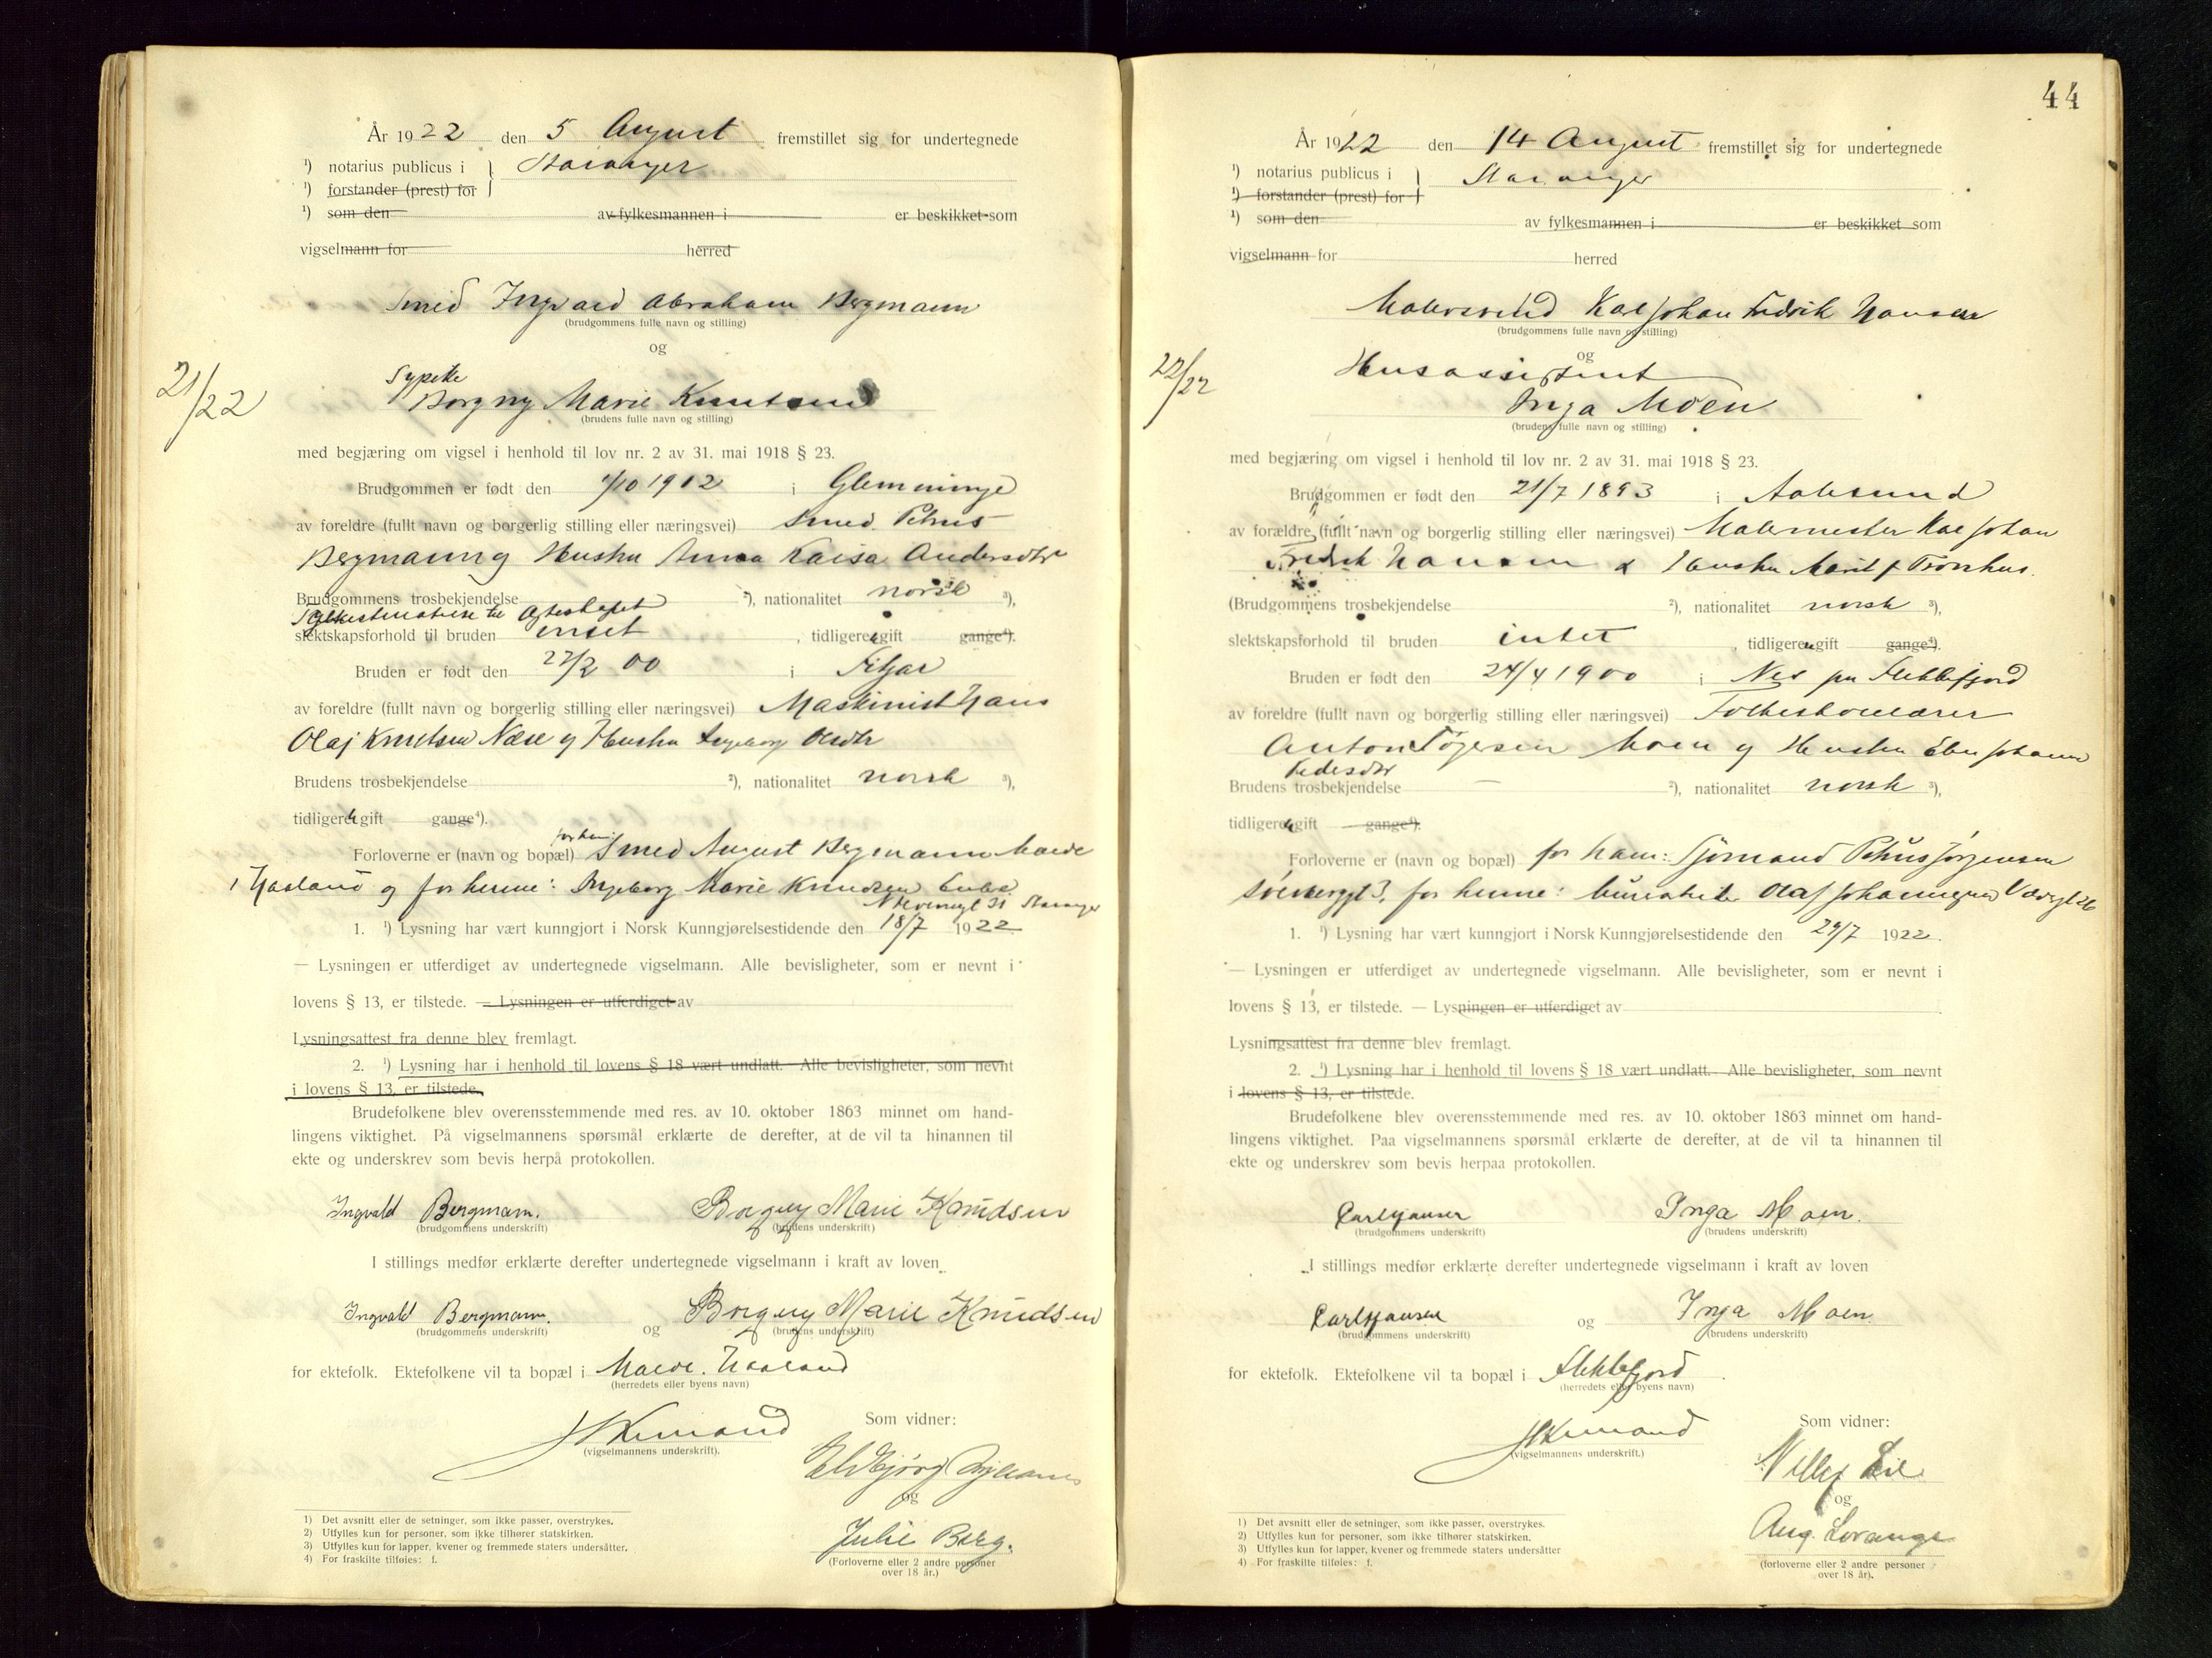 År 1922 den 5 August fremstillet sig for undertegnede
¹) notarius publicus i } Stavanger
¹) forstander (prest) for
¹) som den av fylkesmannen i er beskikket som
vigselmann for herred
Smed Ingvald Abraham Bergmann
(brudgommens fulle navn og stilling)
og
21/22
Sypike
Borgny Marie Knutsen
(brudens fulle navn og stilling)
med begjæring om vigsel i henhold til lov nr. 2 av 31. mai 1918 § 23.
Brudgommen er født den 1/10 1902 i Glemminge
av foreldre (fullt navn og borgerlig stilling eller næringsvei) Smed Petrus
Bergmann og Hustru Anna Kaisa Andersdtr
Brudgommens trosbekjendelse ²), nationalitet norsk ³),
til Egteskapet
slektskapsforhold til bruden intet, tidligere ugift gange⁴).
Bruden er født den 22/2 00 i Fitjar
av foreldre (fullt navn og borgerlig stilling eller næringsvei) Maskinist Hans
Olaj Knutsen Næse og Hustru Ingeborg Olsdtr
Brudens trosbekjendelse ²), nationalitet norsk ³),
tidligere ugift gange⁴).
for ham:
Forloverne er (navn og bopæl) Smed August Bergmann Malde
i Haaland og for henne: Ingeborg Marie Knudsen Enke
31 Stavanger
1. ¹) Lysning har vært kunngjort i Norsk Kunngjørelsestidende den 18/7 1922
— Lysningen er utferdiget av undertegnede vigselmann. Alle bevisligheter, som er nevnt i
lovens § 13, er tilstede. — Lysningen er utferdiget av
Lysningsattest fra denne blev fremlagt.
2. ¹) Lysning har i henhold til lovens § 18 vært undlatt. Alle bevisligheter, som nevnt
i lovens § 13, er tilstede.
Brudefolkene blev overensstemmende med res. av 10. oktober 1863 minnet om hand-
lingens viktighet. På vigselmannens spørsmål erklærte de derefter, at de vil ta hinannen til
ekte og underskrev som bevis herpå protokollen.
Ingvald Bergmann. Borgny Marie Knudsen
(brudgommens underskrift) (brudens underskrift)
I stillings medfør erklærte derefter undertegnede vigselmann i kraft av loven
Ingvald Bergmann. og Borgny Marie Knudsen
(brudgommens underskrift) (brudens underskrift)
for ektefolk. Ektefolkene vil ta bopæl i Malde. Haaland
(herredets eller byens navn)
(vigselmannens underskrift).
Som vidner:
og
Julie Berg.
(Forloverne eller 2 andre personer
over 18 år.)
1) Det avsnitt eller de setninger, som ikke passer, overstrykes.
2) Utfylles kun for personer, som ikke tilhører statskirken.
3) Utfylles kun for lapper, kvener og fremmede staters undersåtter.
4) For fraskilte tilføies: f.
44
År 1922 den 14 August fremstillet sig for undertegnede
¹) notarius publicus i } Stavanger
¹) forstander (prest) for
¹) som den av fylkesmannen i er beskikket som
vigselmann for herred
Malersvend Karl Johan Fredrik Hansen
(brudgommens fulle navn og stilling)
og
22/22
Husassistent
Inga Moen
(brudens fulle navn og stilling)
med begjæring om vigsel i henhold til lov nr. 2 av 31. mai 1918 § 23.
Brudgommen er født den 21/7 1893 i Aalesund
av forældre (fullt navn og borgerlig stilling eller næringsvei) Malermester Karl Johan
Fredrik Hansen & Hustru Marit f Tronhus.
(Brudgommens trosbekjendelse ²), nationalitet norsk ³),
slektskapsforhold til bruden intet, tidligere ugift gange⁴).
Bruden er født den 24/4 1900 i Nes pr Flekkefjord
av foreldre (fullt navn og borgerlig stilling eller næringsvei) Folkeskolelærer
Anton Tørjesen Moen og Hustru Johanne
Pedersdtr
Brudens trosbekjendelse — ²), nationalitet norsk ³),
tidligere ugift gange⁴).
Forloverne er (navn og bopæl) for ham: Sjømand Petrus Jørgensen
Solvberggt 3, for henne: Olaf Johannesen
1. ¹) Lysning har vært kunngjort i Norsk Kunngjørelsestidende den 29/7 1922.
— Lysningen er utferdiget av undertegnede vigselmann. Alle bevisligheter, som er nevnt i
lovens § 13, er tilstede. — Lysningen er utferdiget av
Lysningsattest fra denne blev fremlagt.
2. ¹) Lysning har i henhold til lovens § 18 vært undlatt. Alle bevisligheter, som nevnt
i lovens § 13, er tilstede.
Brudefolkene blev overensstemmende med res. av 10. oktober 1863 minnet om hand-
lingens viktighet. Paa vigselmannens spørsmål erklærte de derefter, at de vil ta hinannen til
ekte og underskrev som bevis herpaa protokollen.
Carl Hansen Inga Moen.
(brudgommens underskrift) (brudens underskrift)
I stillings medfør erklærte derefter undertegnede vigselmann i kraft av loven
Carl Hansen og Inga Moen.
(brudgommens underskrift) (brudens underskrift)
for ektefolk. Ektefolkene vil ta bopæl i Flekkefjord
(herredets eller byens navn)
(vigselmannens underskrift.)
Som vidner:
Willy Lie
og
Aug. Lorange
(forloverne eller 2 andre personer
over 18 år).
1) Det avsnitt eller de setninger, som ikke passer, overstrykes.
2) Utfylles kun for personer, som ikke tilhører statskirken.
3) Utfylles kun for lapper, kvener og fremmede staters undersåtter
4) For fraskilte tilføies: f.